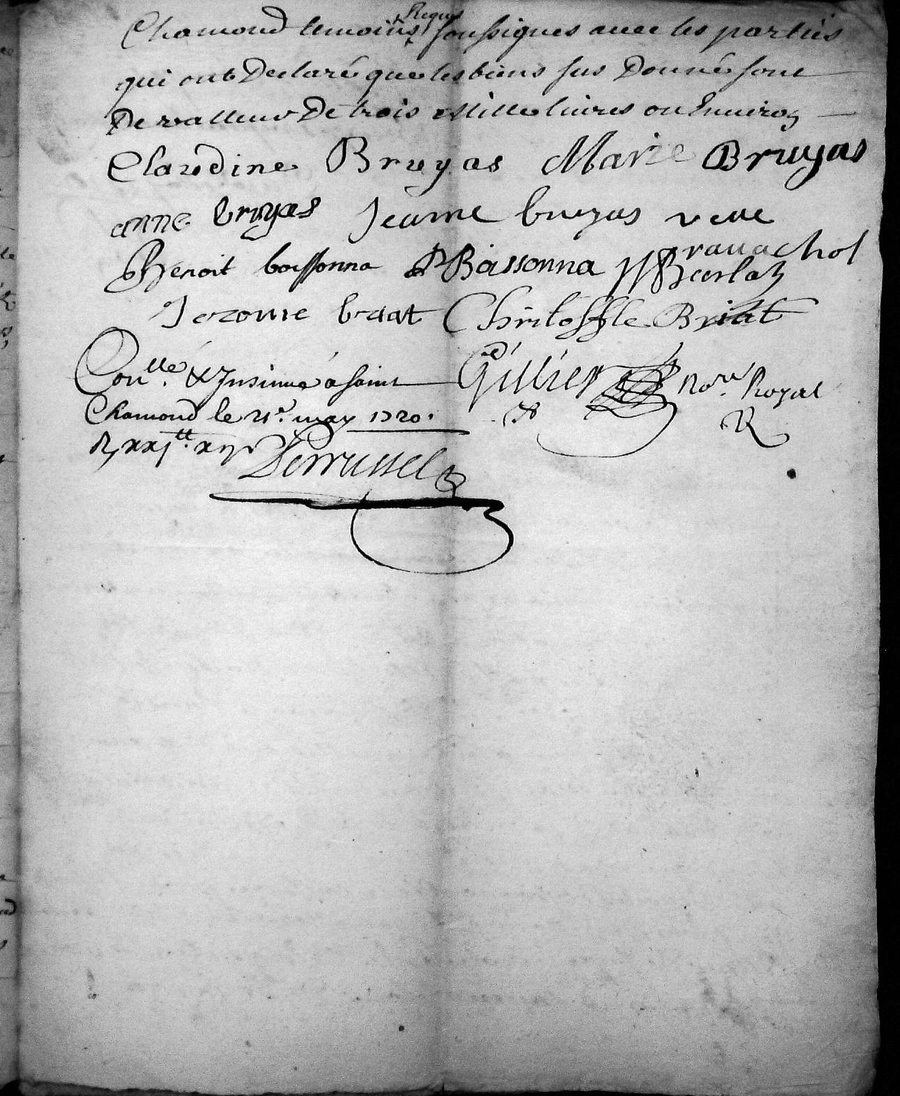 Chamond temoins Requis soussignes avec les parties
qui ont Declaré que les biens sus Donné sont
De valleur De trois Mille livres ou Environ
Claudine Bruyas Marie Bruyas
anne bruyas Jeanne bruyas veuve
ravachol
Benoit boissonna Boissonna
Jerome briat Christoffle Briat
Con.lle & Insinué a saint
Chamond le 21e. may 1720.
Gillier No.re Royal
Perrussel